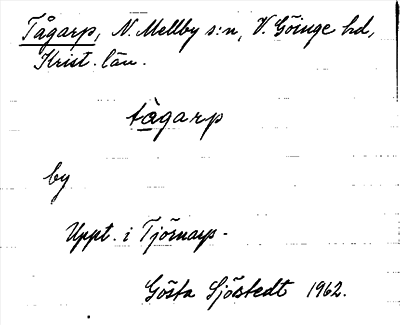 Tågarp, N. Mellby s:n, V. Göinge hd,
Krist. län.
tàgarp
by
Uppt. i Tjörnarp.
Gösta Sjöstedt 1962.